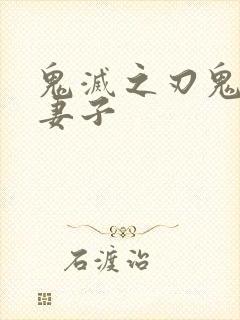 鬼滅之刃鬼
妻子
石渡治